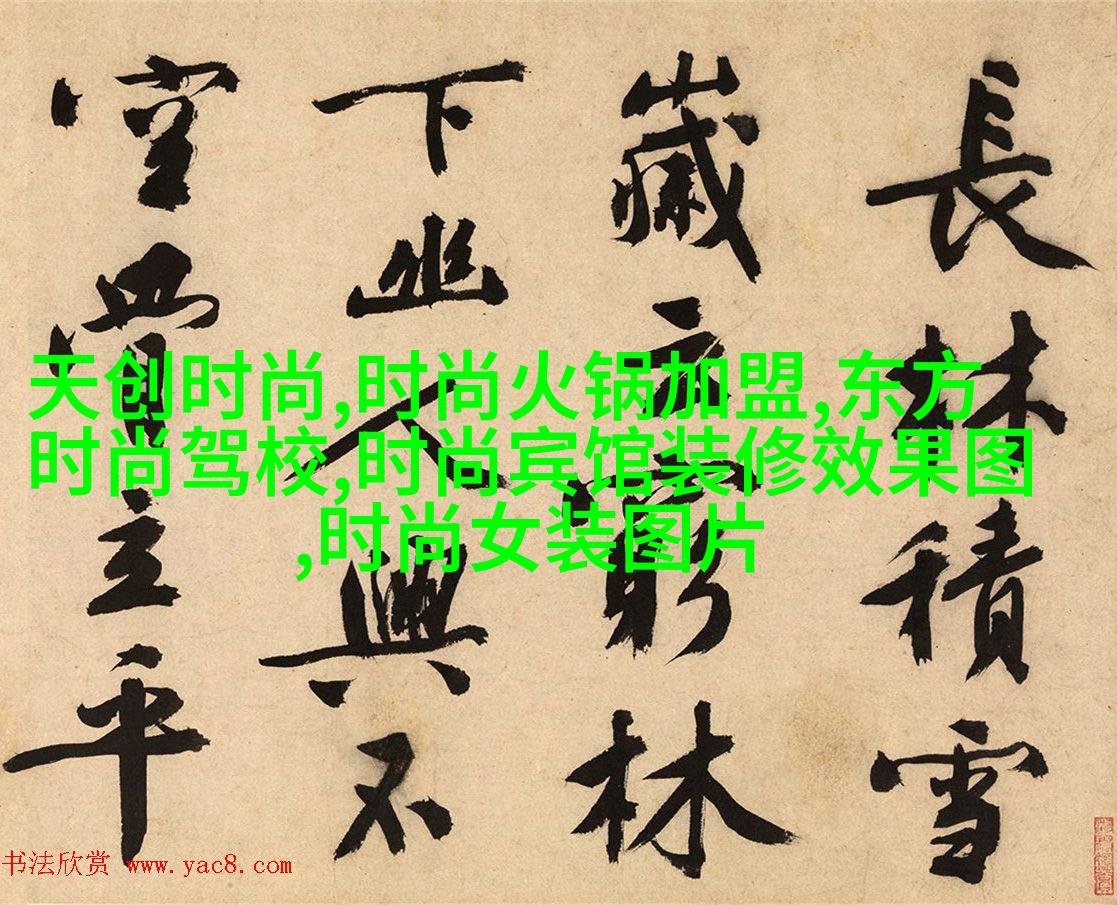 長林積雪
歲云窮林
下幽人興不
空立平
天创时尚,时尚火锅加盟,东方
时尚驾校,时尚宾馆装修效果图
,时尚女装图片
书法欣赏 www.yac8.com